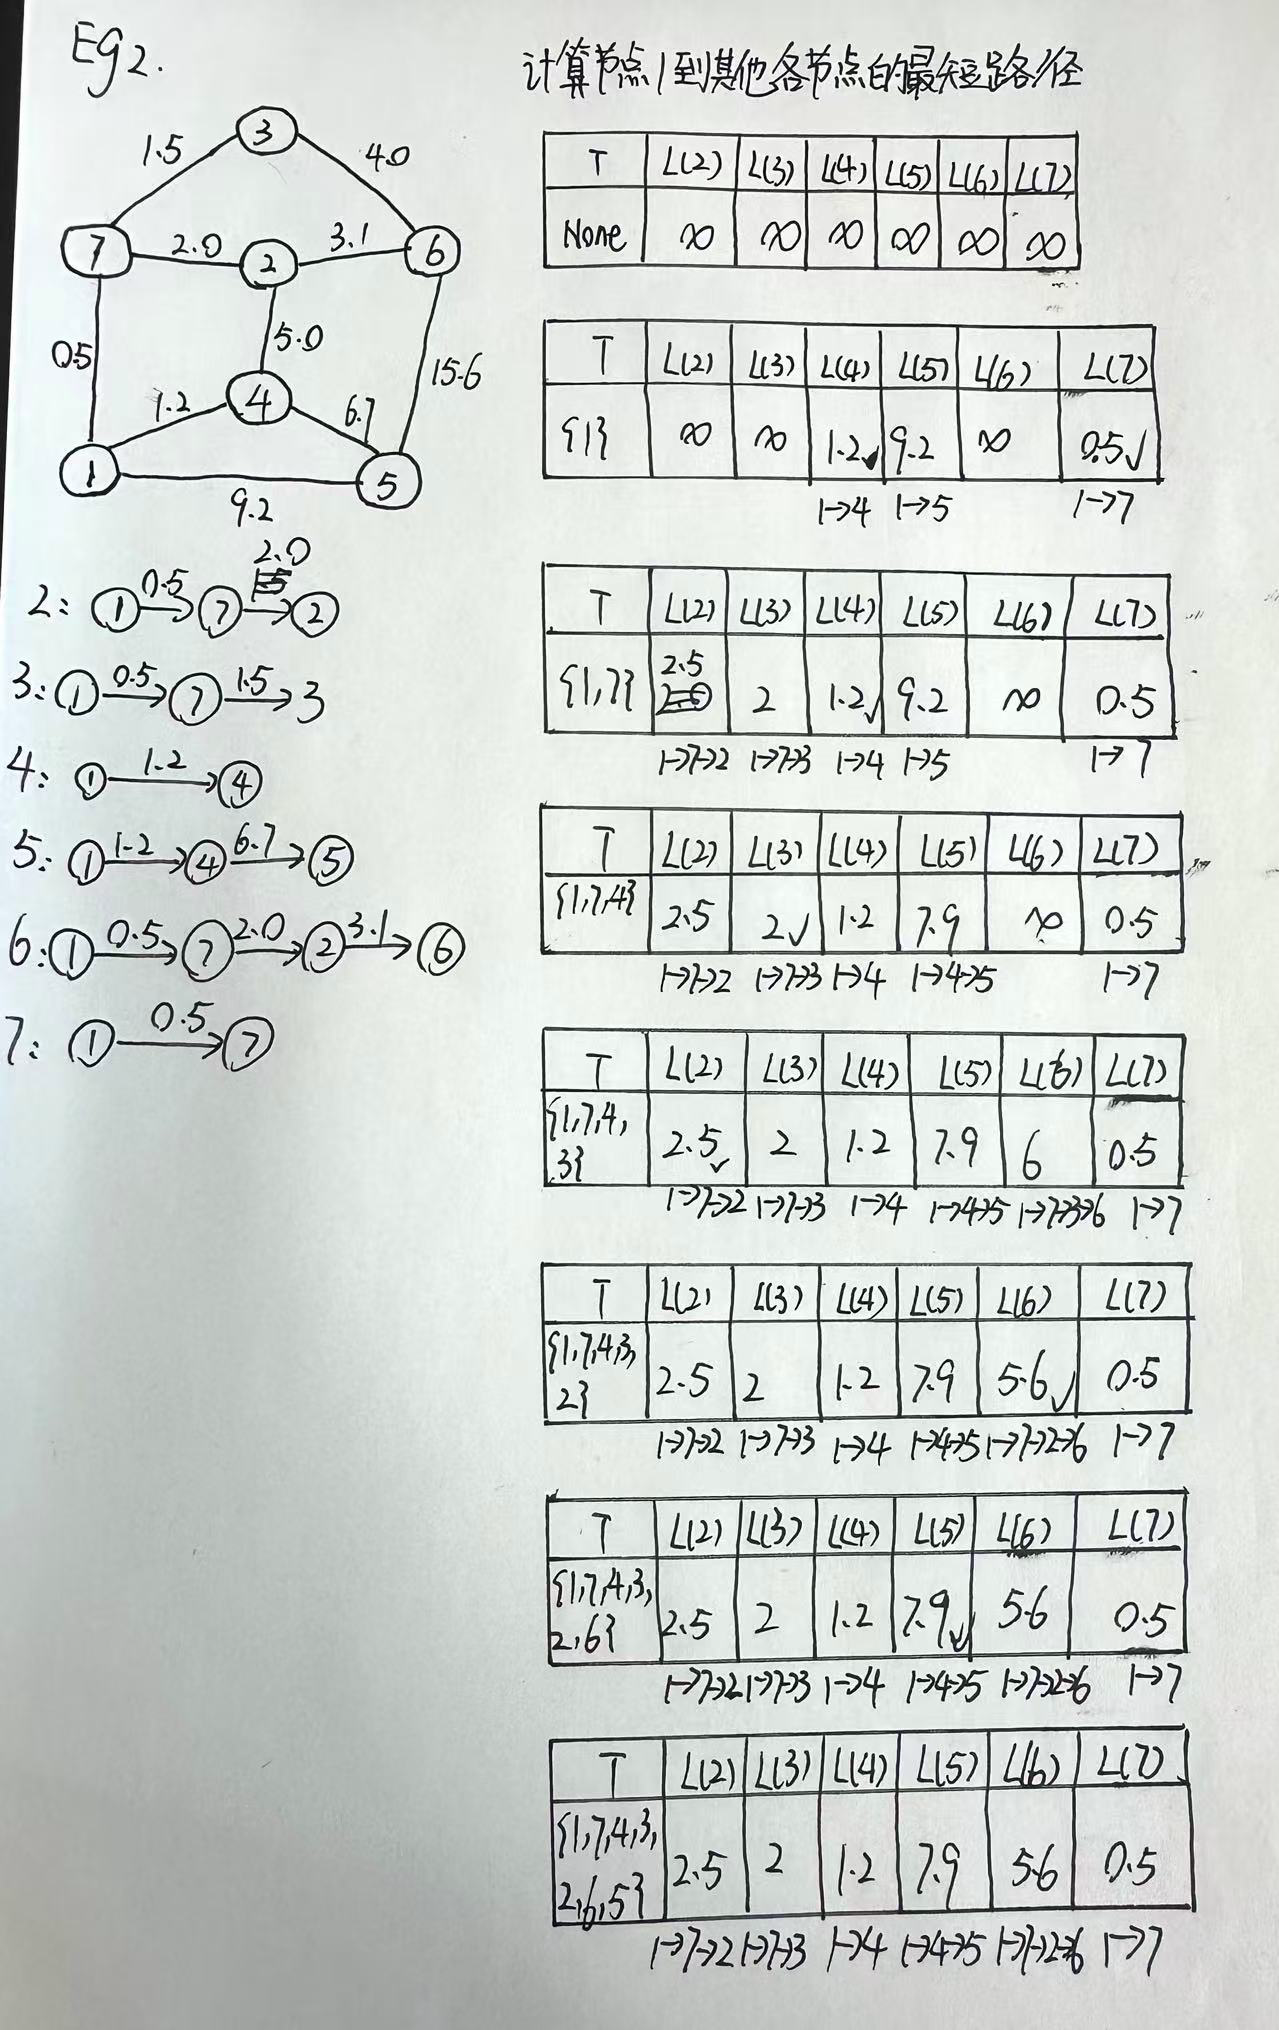 Eg2.
计算节点1到其他各节点的最短路径
3
1.5
4.0
7
2.0
2
3.1
6
0.5
5.0
15.6
1.2
4
6.7
1
5
9.2
2: 1 0.5→ 7 2.0→ 2
3: 1 0.5→ 7 1.5→ 3
4: 1 1.2→ 4
5: 1 1.2→ 4 6.7→ 5
6: 1 0.5→ 7 2.0→ 2 3.1→ 6
7: 1 0.5→ 7
T L(2) L(3) L(4) L(5) L(6) L(7)
None ∞ ∞ ∞ ∞ ∞ ∞
T L(2) L(3) L(4) L(5) L(6) L(7)
{1} ∞ ∞ 1.2✓ 9.2 ∞ 0.5✓
1→4 1→5 1→7
T L(2) L(3) L(4) L(5) L(6) L(7)
{1,7} 2.5 2 1.2✓ 9.2 ∞ 0.5
1→7→2 1→7→3 1→4 1→5 1→7
T L(2) L(3) L(4) L(5) L(6) L(7)
{1,7,4} 2.5 2✓ 1.2 7.9 ∞ 0.5
1→7→2 1→7→3 1→4 1→4→5 1→7
T L(2) L(3) L(4) L(5) L(6) L(7)
{1,7,4, 2.5✓ 2 1.2 7.9 6 0.5
3}
1→7→2 1→7→3 1→4 1→4→5 1→7→3→6 1→7
T L(2) L(3) L(4) L(5) L(6) L(7)
{1,7,4,3, 2.5 2 1.2 7.9 5.6✓ 0.5
2}
1→7→2 1→7→3 1→4 1→4→5 1→7→2→6 1→7
T L(2) L(3) L(4) L(5) L(6) L(7)
{1,7,4,3, 2.5 2 1.2 7.9✓ 5.6 0.5
2,6}
1→7→2 1→7→3 1→4 1→4→5 1→7→2→6 1→7
T L(2) L(3) L(4) L(5) L(6) L(7)
{1,7,4,3, 2.5 2 1.2 7.9 5.6 0.5
2,6,5}
1→7→2 1→7→3 1→4 1→4→5 1→7→2→6 1→7